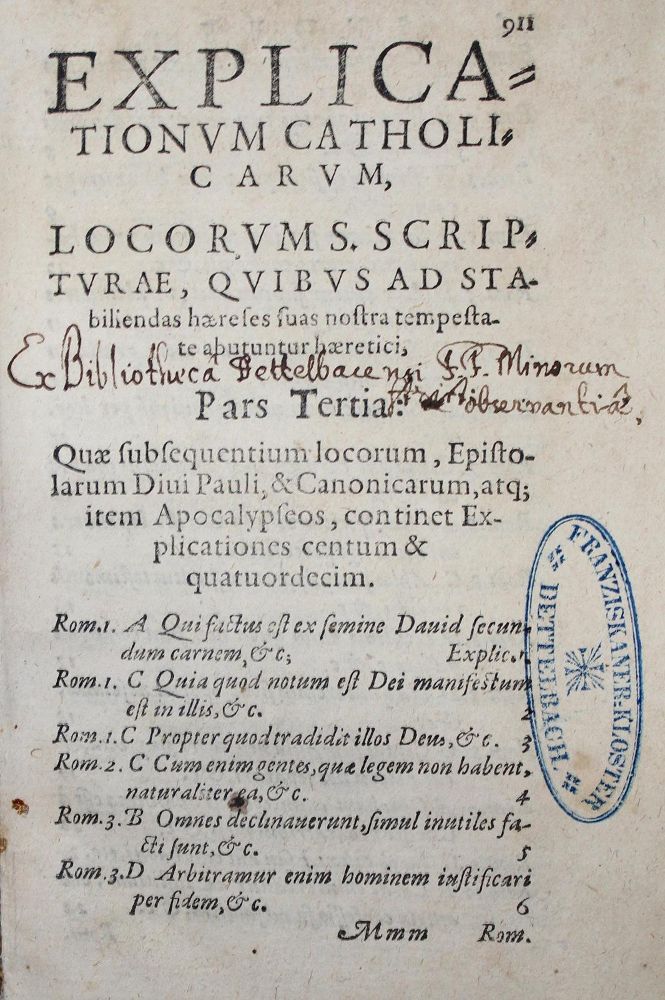 911
EXPLICA-
TIONVM CATHOLI-
CARVM,
LOCORVM S. SCRIP-
TVRAE, QVIBVS AD STA-
biliendas hæreſes ſuas noſtra tempeſta-
te abutuntur hæretici,
Ex Bibliotheca Dettelbacensi F.F. Minorum
Pars Tertia.
strict: observantiæ,
Quæ ſubſequentium locorum, Epiſto-
larum Diui Pauli, & Canonicarum, atq;
item Apocalypſeos, continet Ex-
plicationes centum &
quatuordecim.
Rom.1. A Qui factus eſt ex ſemine Dauid ſecun-
dum carnem, &c; Explic. 1
Rom.1. C Quia quod notum eſt Dei manifeſtum
eſt in illis, &c. 2
Rom.1. C Propter quod tradidit illos Deus, &c. 3
Rom.2. C Cum enim gentes, quæ legem non habent,
naturaliter ea, &c. 4
Rom.3. B Omnes declinauerunt, ſimul inutiles fa-
cti ſunt, &c. 5
Rom.3. D Arbitramur enim hominem iuſtificari
per fidem, &c. 6
Mmm Rom.
FRANZISKANER-KLOSTER
DETTELBACH